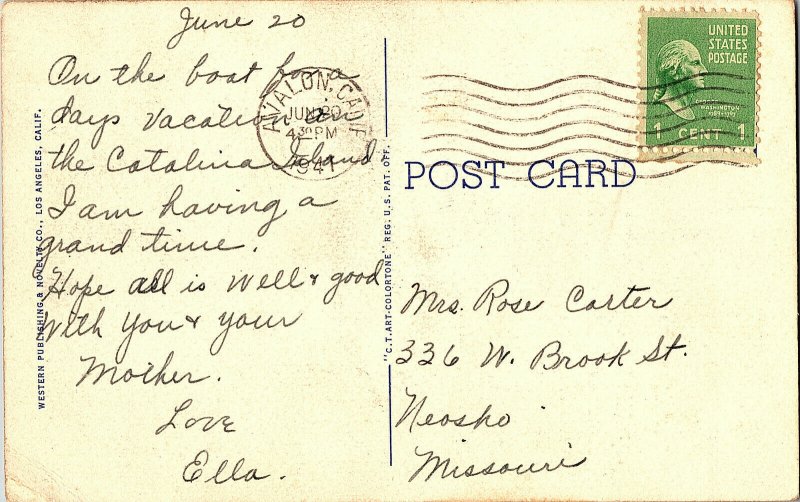 June 20
On the boat for a
days vacation on
the Catalina Island
I am having a
grand time.
Hope all is well & good
With you & your
Mother.
Love
Ella.
AVALON, CALIF.
JUN 20
4 30 PM
1941
UNITED
STATES
POSTAGE
WASHINGTON
1 CENT 1
POST CARD
Mrs. Rose Carter
336 W. Brook St.
Neosho
Missouri
WESTERN PUBLISHING & NOVELTY CO., LOS ANGELES, CALIF.
"C.T. ART-COLORTONE" REG. U.S. PAT. OFF.